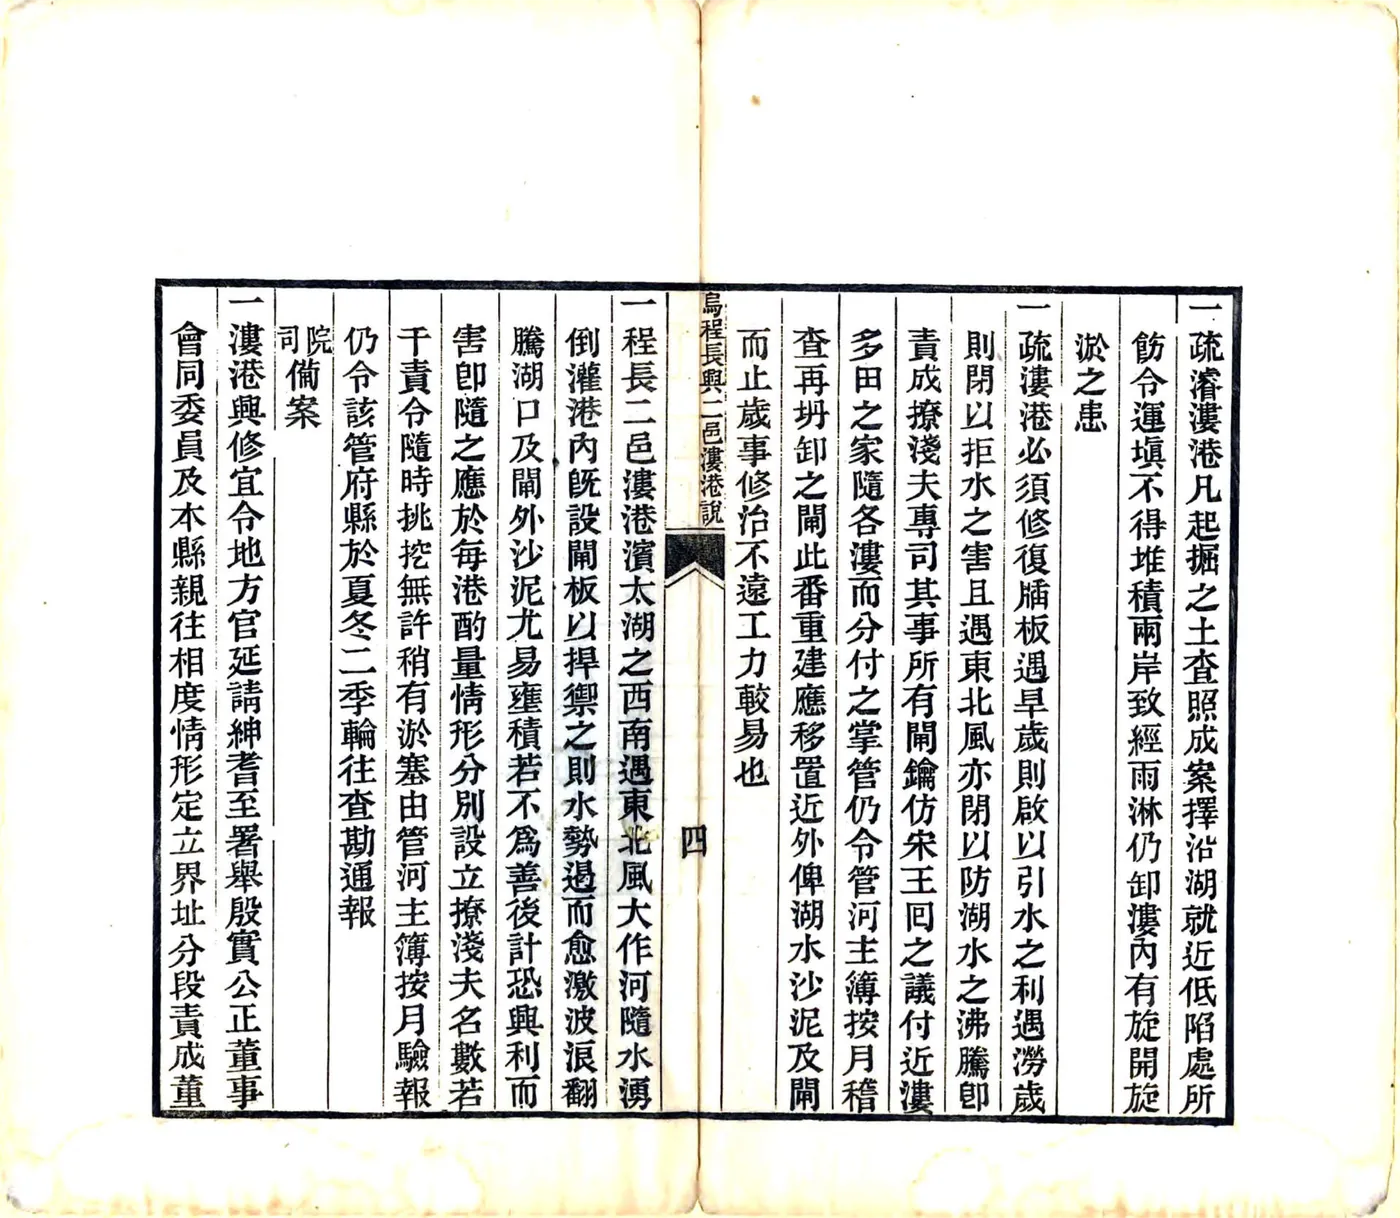 一疏濬漊港凡起掘之土查照成案擇沿湖就近低陷處所
飭令運塡不得堆積兩岸致經雨淋仍卸漊內有旋開旋
淤之患
一疏漊港必須修復牐板遇旱歲則啟以引水之利遇澇歲
則閉以拒水之害且遇東北風亦閉以防湖水之沸騰卽
責成撩淺夫專司其事所有閘鑰仿宋王囘之議付近漊
多田之家隨各漊而分付之掌管仍令管河主簿按月稽
查再坍卸之閘此番重建應移置近外俾湖水沙泥及閘
而止歲事修治不遠工力較易也
烏程長興二邑漊港說
四
一程長二邑漊港濱太湖之西南遇東北風大作河隨水湧
倒灌港內旣設閘板以捍禦之則水勢遏而愈激波浪翻
騰湖口及閘外沙泥尤易壅積若不爲善後計恐興利而
害卽隨之應於每港酌量情形分別設立撩淺夫名數若
干責令隨時挑挖無許稍有淤塞由管河主簿按月驗報
仍令該管府縣於夏冬二季輪往查勘通報
院司備案
一漊港興修宜令地方官延請紳耆至署舉殷實公正董事
會同委員及本縣親往相度情形定立界址分段責成董